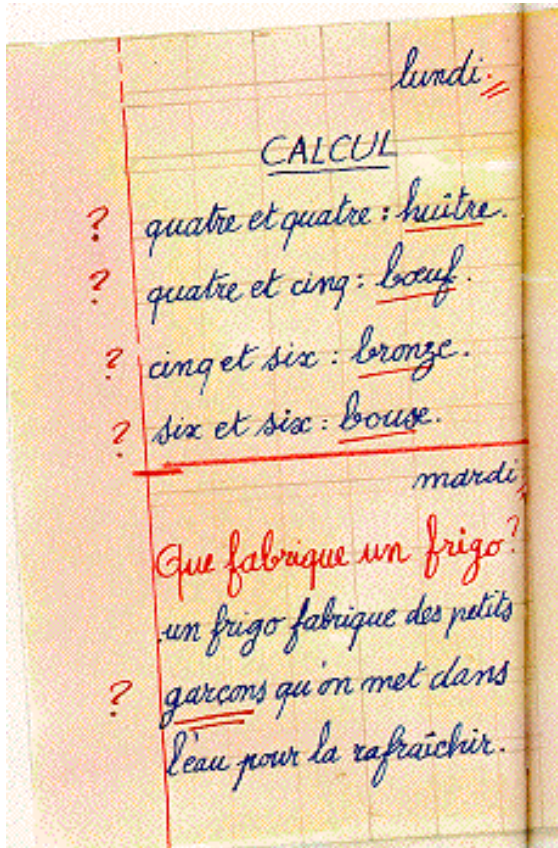 lundi.
CALCUL
? quatre et quatre : huître.
? quatre et cinq : bœuf.
? cinq et six : bronze.
? six et six : bouse.
mardi
Que fabrique un frigo?
un frigo fabrique des petits
? garçons qu'on met dans
l'eau pour la rafraîchir.